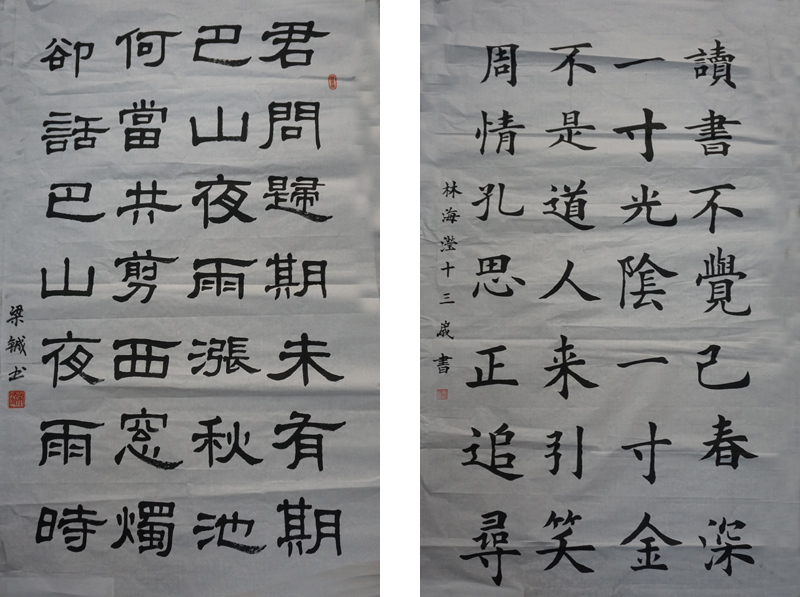 君問歸期未有期
巴山夜雨漲秋池
何當共剪西窓燭
卻話巴山夜雨時
梁鋮书
讀書不覺己春深
一寸光陰一寸金
不是道人来引笑
周情孔思正追尋
林海滢十三歲書